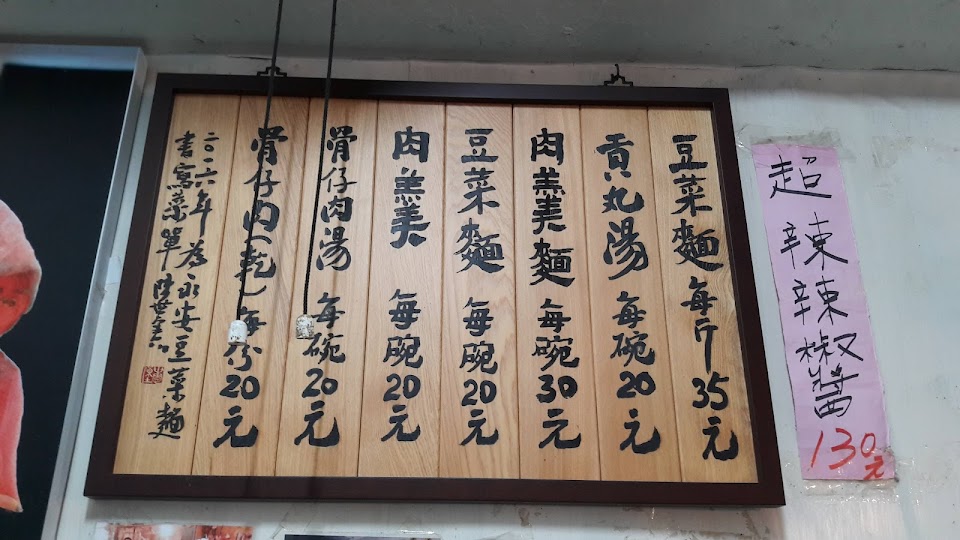 豆菜麵 每斤35元
貢丸湯 每碗20元
肉羹麵 每碗30元
豆菜麵 每碗20元
肉羹 每碗20元
骨仔肉湯 每碗20元
骨仔肉(乾) 每份20元
二〇一六年為永安豆菜麵
書寫菜單
超辣辣椒醬
130元